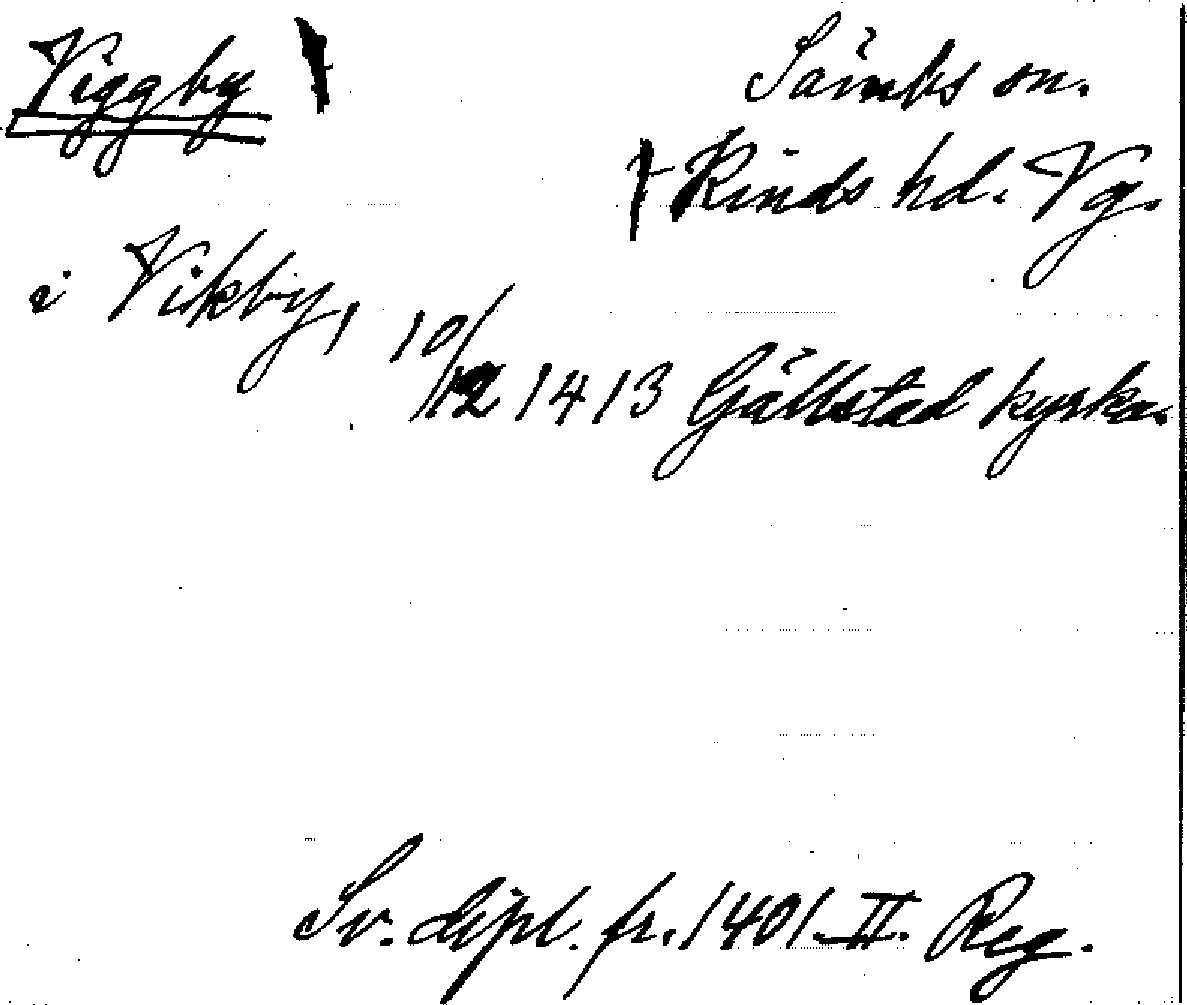 Viggby
Sämbs sn.
Kinds hd. Vg.
i Vikby, 10/12 1413 Gällstad kyrka.
Sv. dipl. fr. 1401. II. Reg.